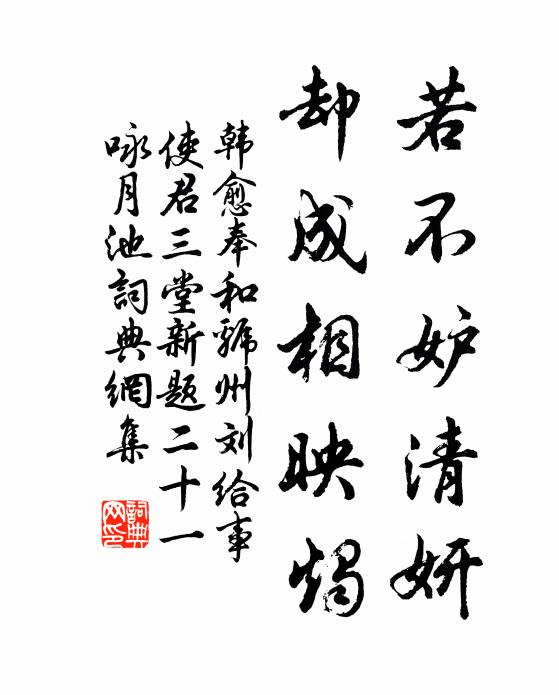 若不妒清妍
却成相映燭
韩愈奉和虢州刘给事
使君三堂新题二十一
咏月池詞典網集
詞典
网印